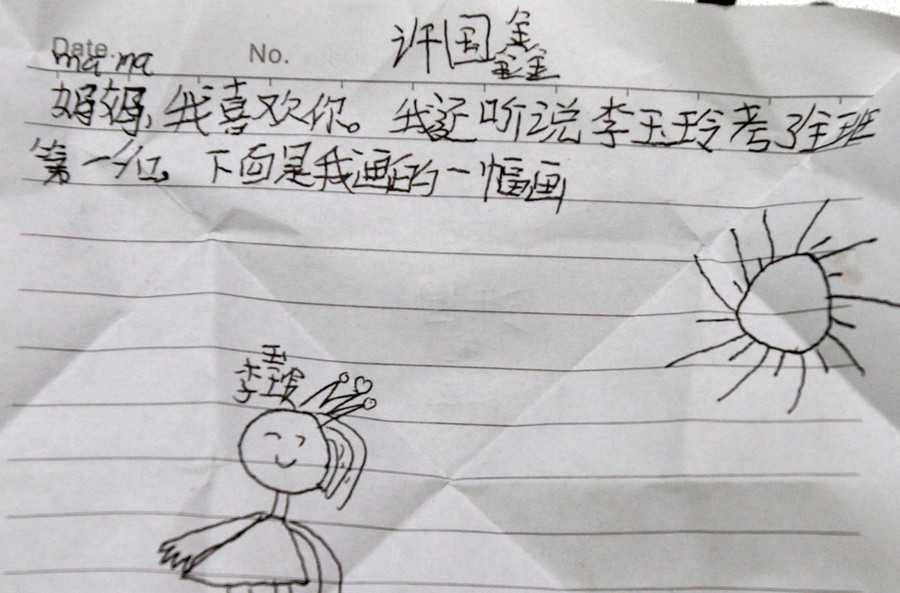 许国鑫
Date.
No.
ma ma
妈妈,我喜欢你。我还听说李玉玲考了全班
第一位。下面是我画的一幅画
李玉玲